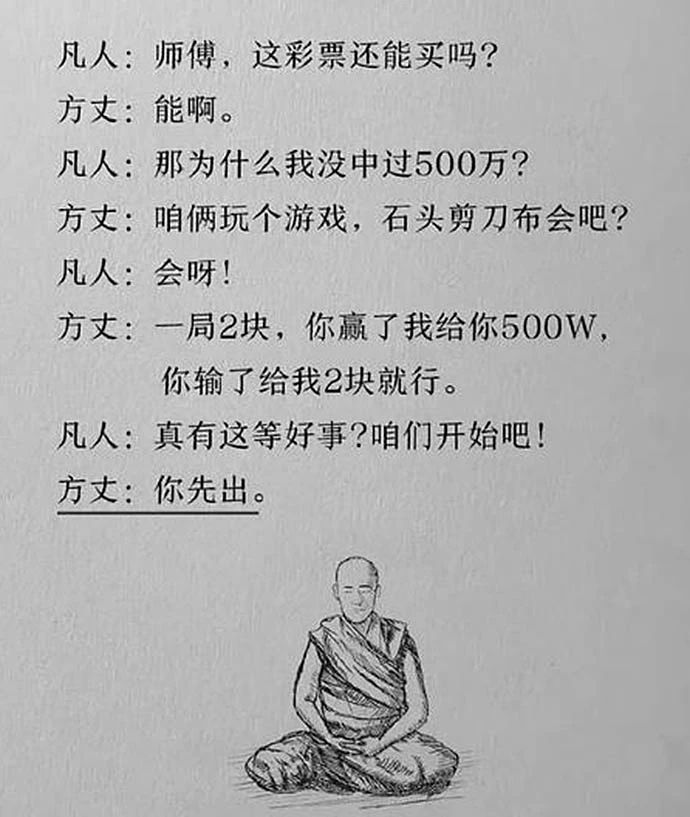 凡人：师傅，这彩票还能买吗？
方丈：能啊。
凡人：那为什么我没中过500万？
方丈：咱俩玩个游戏，石头剪刀布会吧？
凡人：会呀！
方丈：一局2块，你赢了我给你500W，
你输了给我2块就行。
凡人：真有这等好事？咱们开始吧！
方丈：你先出。